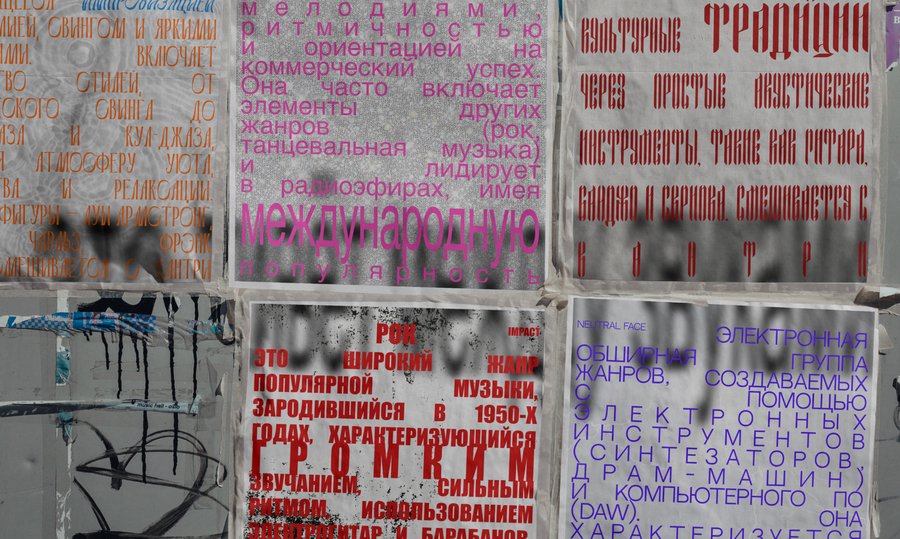 импровизацией
СВИНГОМ И ЯРКИМИ
ВКЛЮЧАЕТ
СТИЛЕЙ, ОТ
СВИНГА ДО
И КУЛ-ДЖАЗА,
АТМОСФЕРУ УЮТА,
И РЕЛАКСАЦИИ.
ЛУИ АРМСТРОНГ,
ЧАРЛЬЗ ФРЭНК
С КАНТРИ
мелодиями,
ритмичностью
и ориентацией на
коммерческий успех.
Она часто включает
элементы других
жанров (рок,
танцевальная музыка)
и лидирует
в радиоэфирах, имея
международную
популярность
КУЛЬТУРНЫЕ ТРАДИЦИИ
ЧЕРЕЗ ПРОСТЫЕ АКУСТИЧЕСКИЕ
ИНСТРУМЕНТЫ, ТАКИЕ КАК ГИТАРА,
БАНДЖО И СКРИПКА. СМЕШИВАЕТСЯ С
КАНТРИ
РОК IMPACT
ЭТО ШИРОКИЙ ЖАНР
ПОПУЛЯРНОЙ МУЗЫКИ,
ЗАРОДИВШИЙСЯ В 1950-Х
ГОДАХ, ХАРАКТЕРИЗУЮЩИЙСЯ
ГРОМКИМ
ЗВУЧАНИЕМ, СИЛЬНЫМ
РИТМОМ, ИСПОЛЬЗОВАНИЕМ
ЭЛЕКТРОГИТАР И БАРАБАНОВ.
NEUTRAL FACE ЭЛЕКТРОННАЯ
ОБШИРНАЯ ГРУППА
ЖАНРОВ, СОЗДАВАЕМЫХ
С ПОМОЩЬЮ
ЭЛЕКТРОННЫХ
ИНСТРУМЕНТОВ
(СИНТЕЗАТОРОВ,
ДРАМ-МАШИН)
И КОМПЬЮТЕРНОГО ПО
(DAW). ОНА
ХАРАКТЕРИЗУЕТСЯ